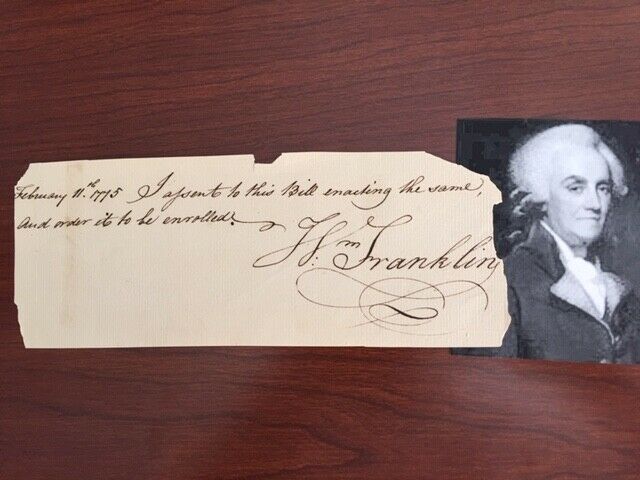 February 11.th 1775 I assent to this Bill enacting the same,
And order it to be enrolled.
Wm Franklin